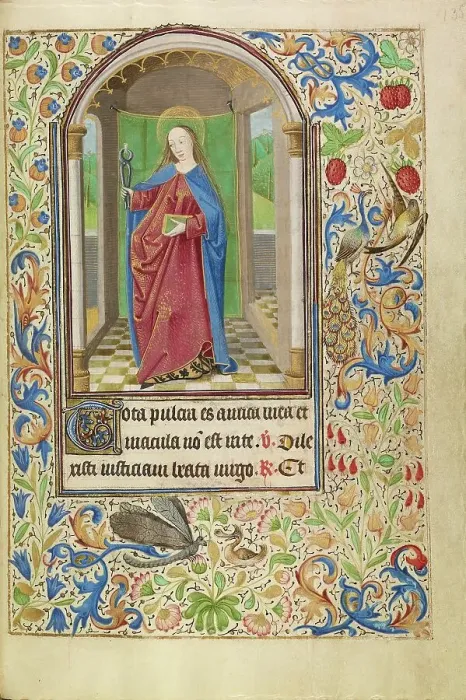 135
Tota pulcra es amica mea et
macula nō est in te. V. Dile
xisti iusticiam beata uirgo. R. Et